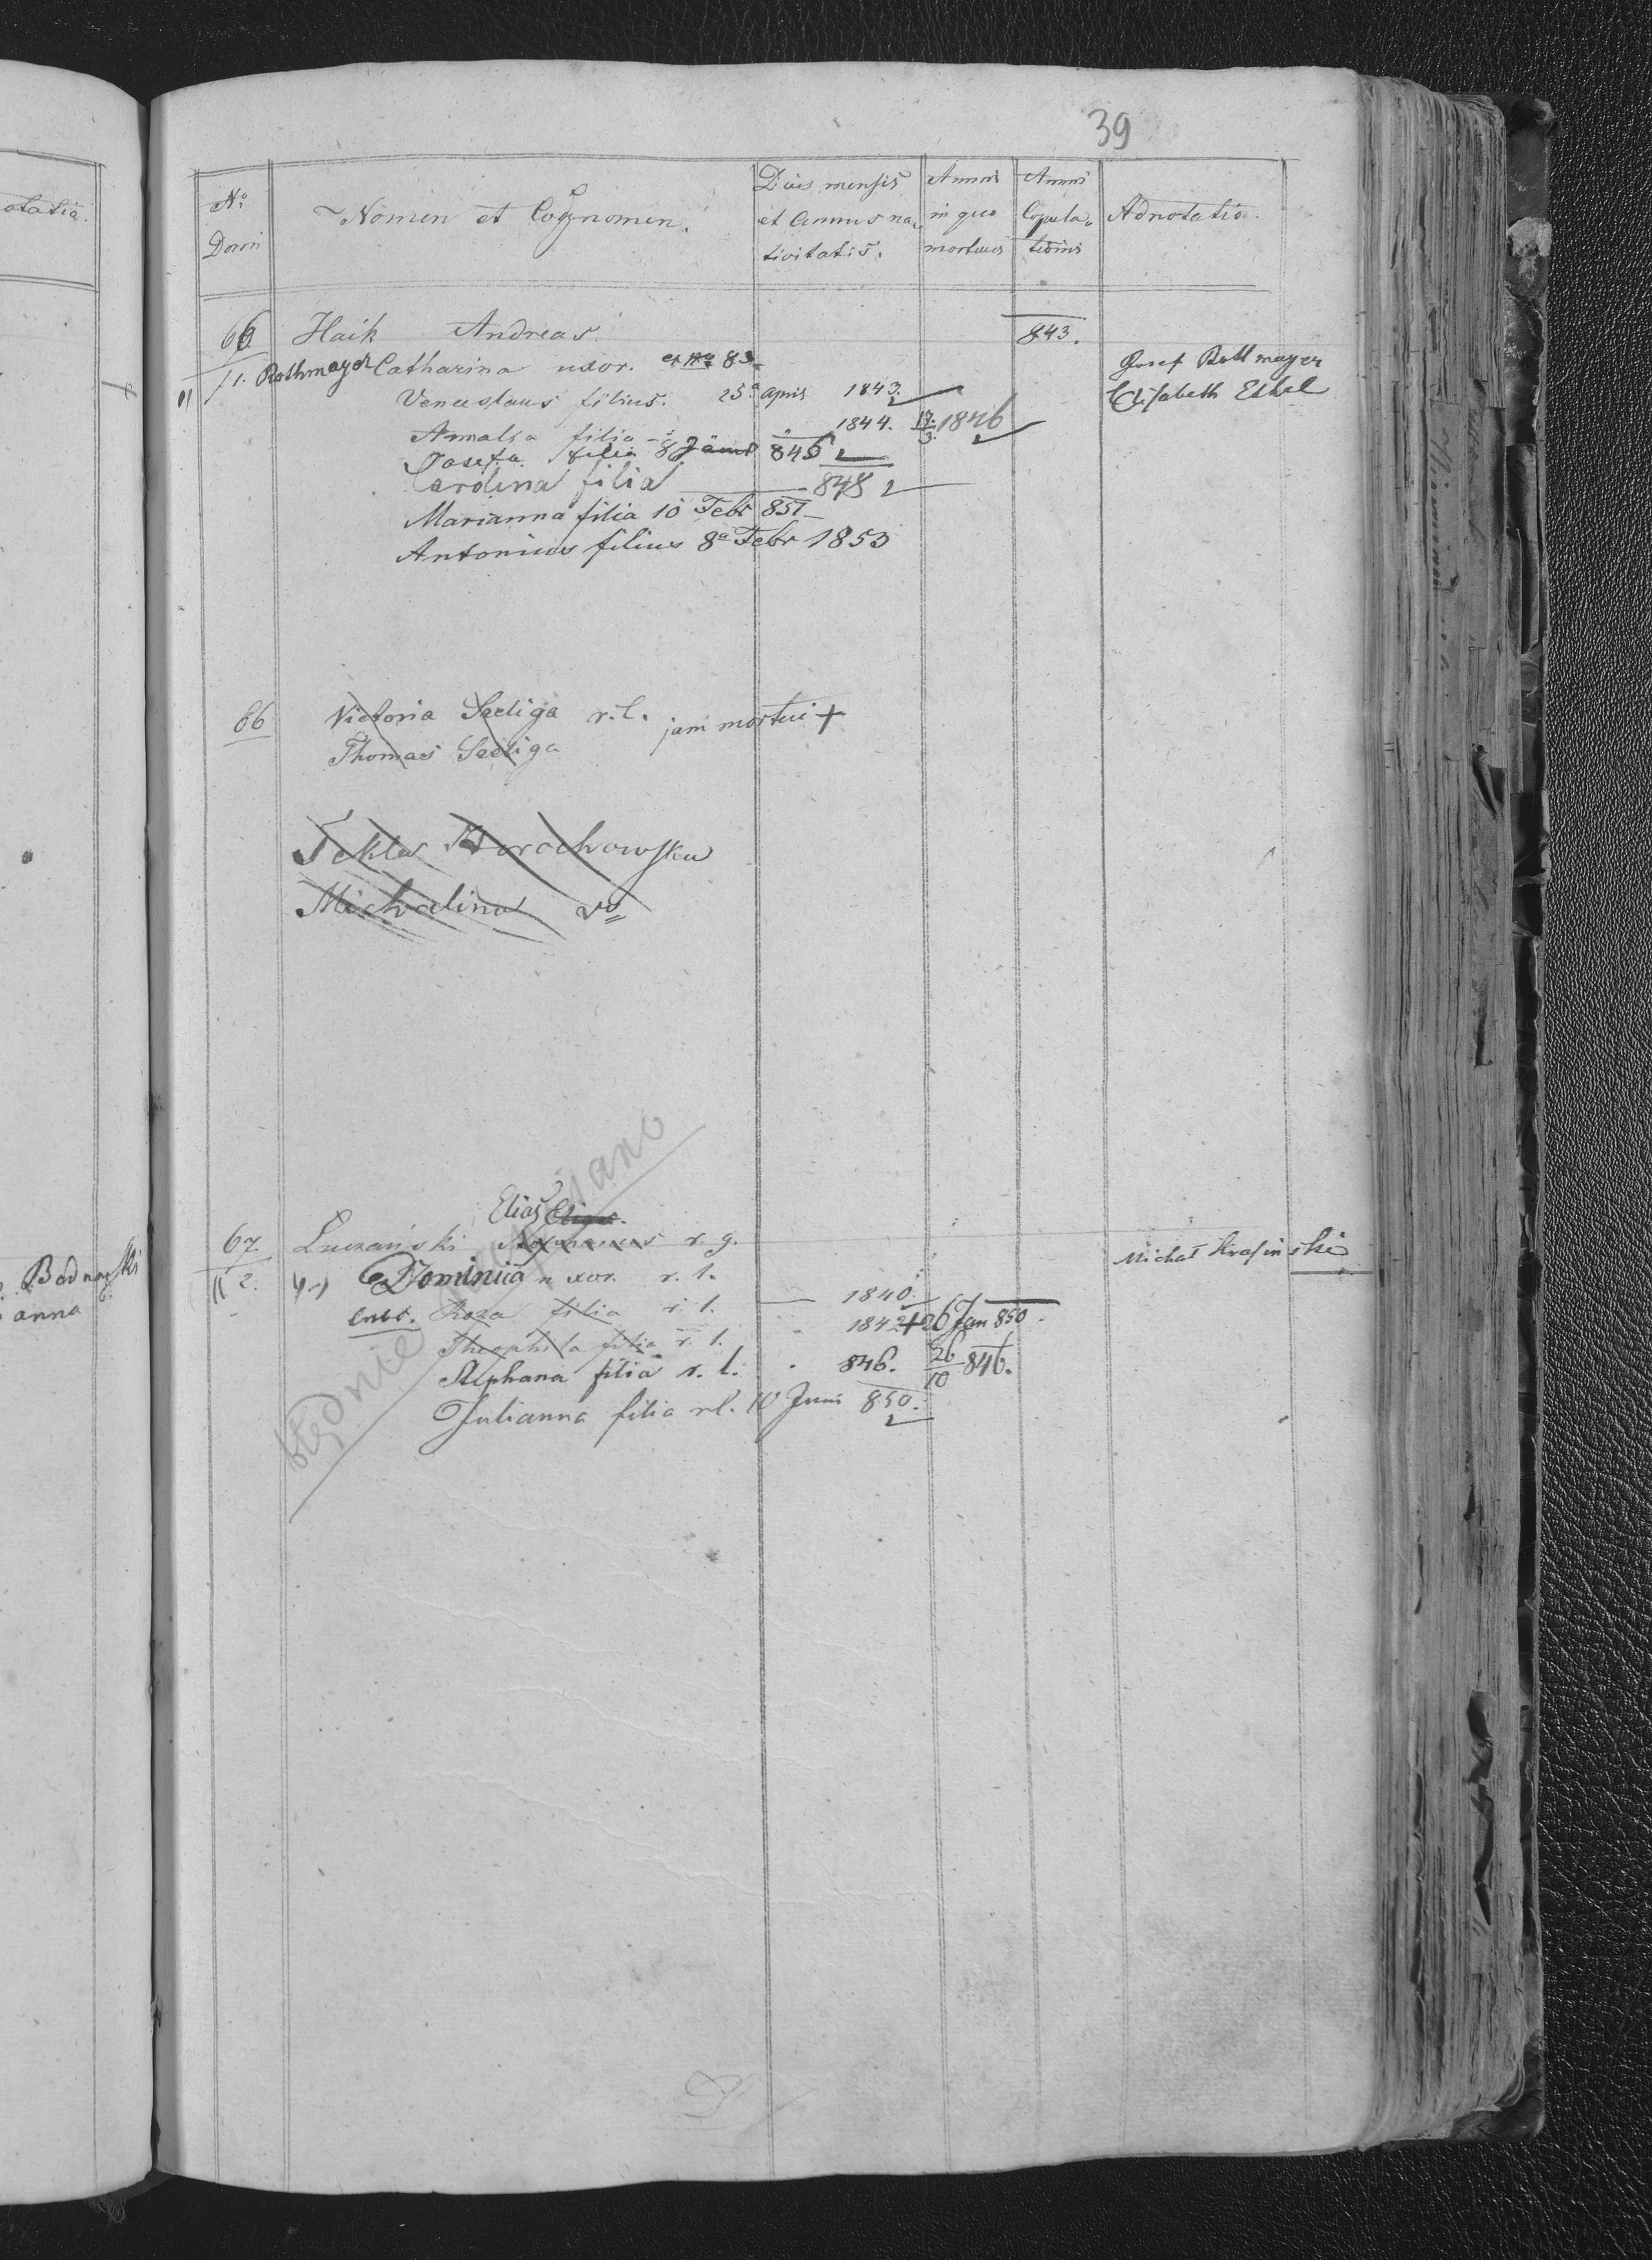 39
No Domi
Nomen et Cognomen.
Dies mensis et Annus nativitatis.
Annus in quo mortuus
Annus Copulationis
Adnotatio.
66 Haik Andreas. 843.
/1. Rothmayer Catharina uxor. 83
Josef Rottmayer
Elisabeth
Venceslaus filius. 25a Apris 1843.
filia 1844. 17/3. 1846
Josefa filia 8 846
Carolina filia 848
Marianna filia 10 Febr 851
Antonius filius 8a Febr 1853
66 Victoria Szeliga r. l. jam mortui +
Thomas Szeliga
Tekla
Michalina
błędnie
Elias
67 Luczański Stephanus r. g. Michał Krasinski
2. Dominica uxor. r. l.
Roza filia r. l. 1840.
Theophila filia r. l. 1842 + 26 Jan 850.
Stephana filia r. l. 846. 26/10 846.
Julianna filia rl. 10 Juni 850.
otatio.
Bodnarski
anna